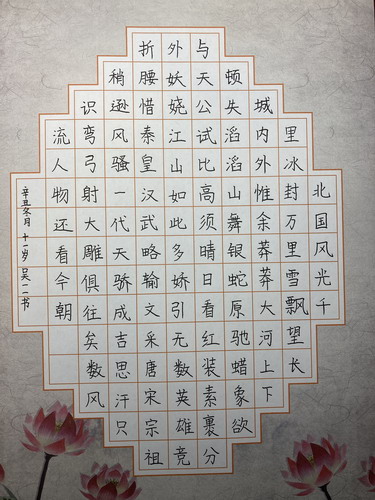 北国风光千
里冰封万里雪飘望长
城内外惟余莽莽大河上下
顿失滔滔山舞银蛇原驰蜡象欲
与天公试比高须晴日看红装素裹分
外妖娆江山如此多娇引无数英雄竞
折腰惜秦皇汉武略输文采唐宋宗祖
稍逊风骚一代天骄成吉思汗只
识弯弓射大雕俱往矣数风
流人物还看今朝
辛丑冬月 十一岁 吴一二书